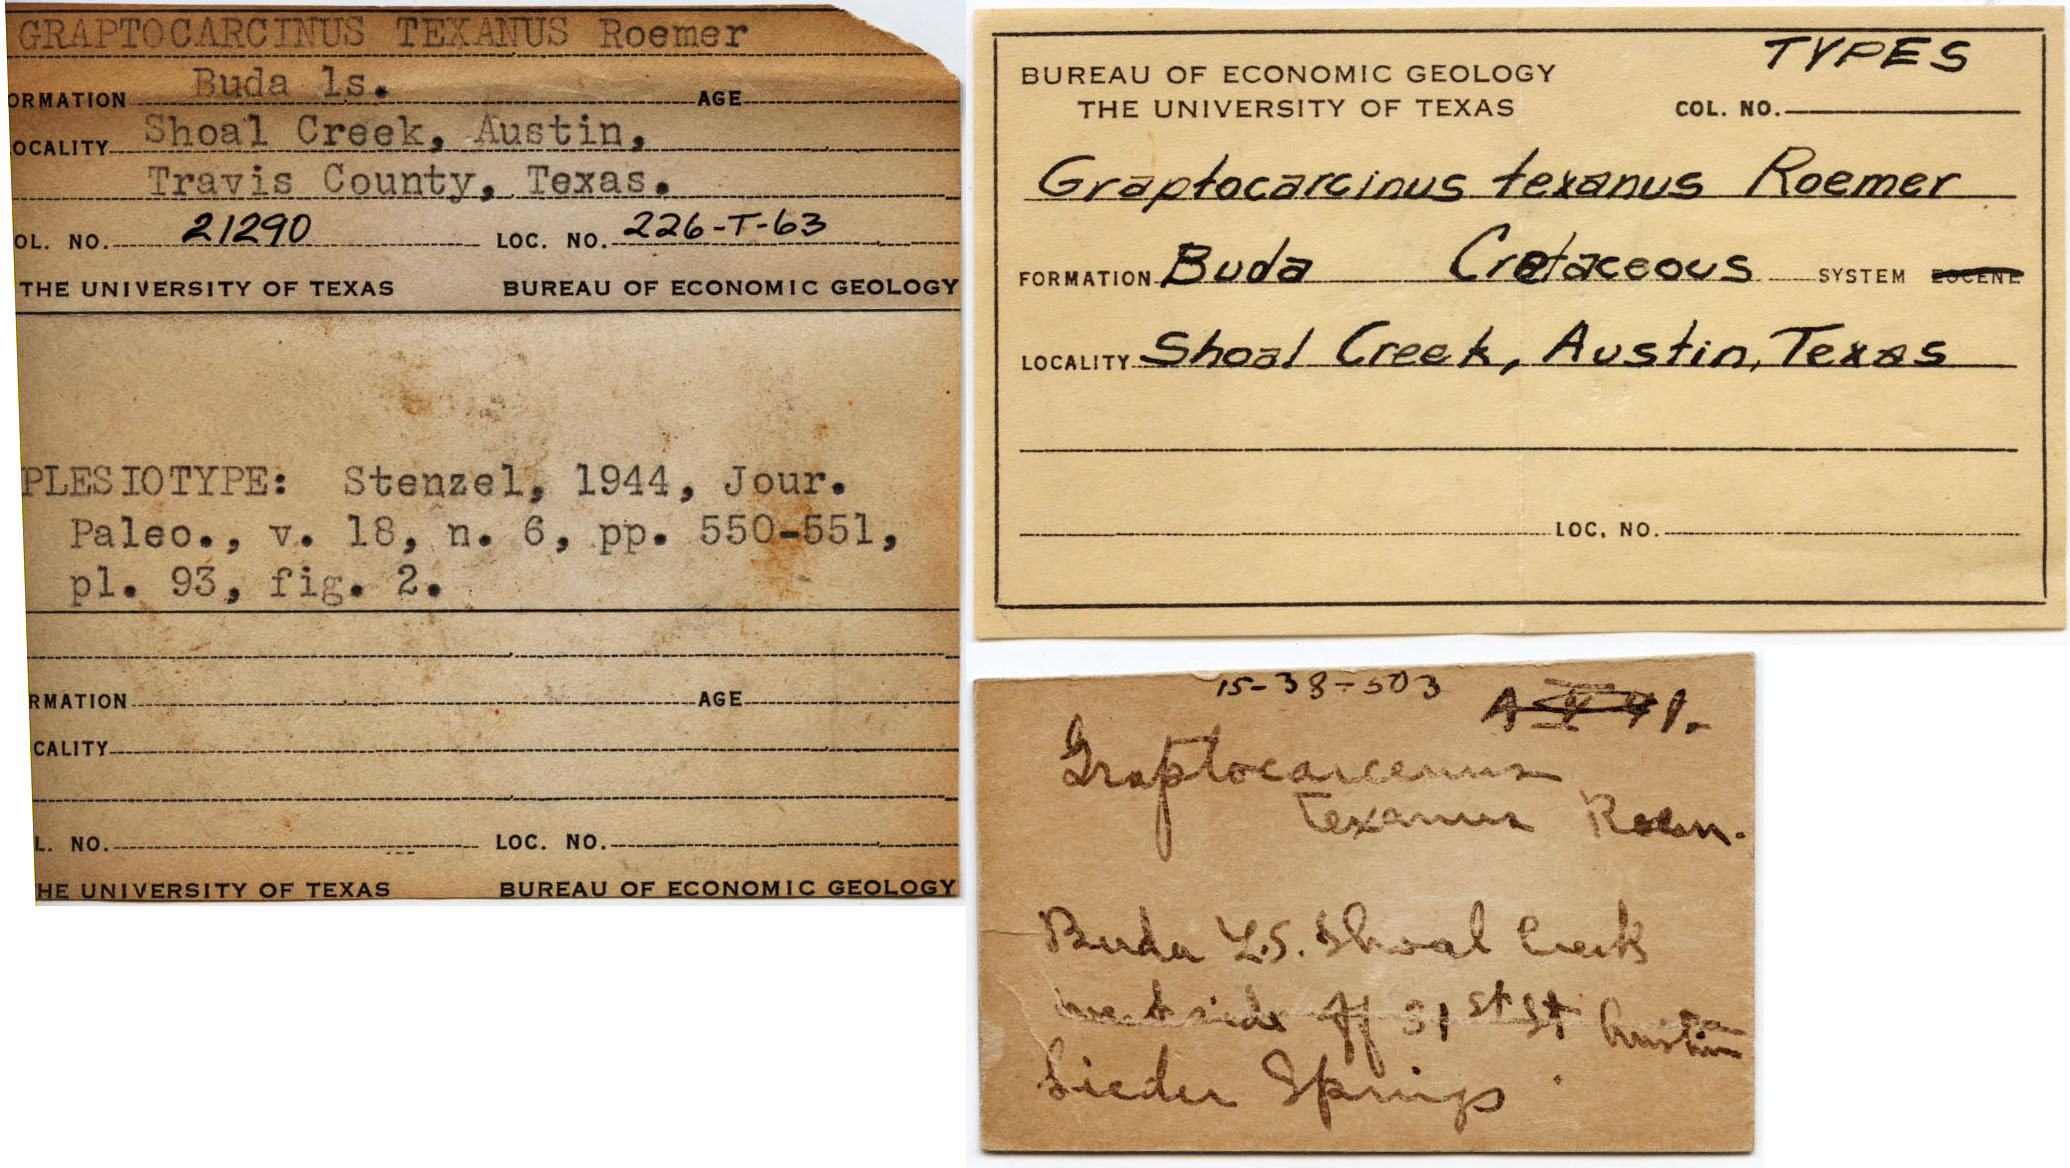 GRAPTOCARCINUS TEXANUS Roemer
ORMATION Buda ls. AGE
OCALITY Shoal Creek, Austin,
Travis County, Texas.
OL. NO. 21290 LOC. NO. 226-T-63
THE UNIVERSITY OF TEXAS BUREAU OF ECONOMIC GEOLOGY
PLESIOTYPE: Stenzel, 1944, Jour.
Paleo., v. 18, n. 6, pp. 550-551,
pl. 93, fig. 2.
RMATION AGE
CALITY
L. NO. LOC. NO.
HE UNIVERSITY OF TEXAS BUREAU OF ECONOMIC GEOLOGY
TYPES
BUREAU OF ECONOMIC GEOLOGY
THE UNIVERSITY OF TEXAS COL. NO.
Graptocarcinus texanus Roemer
FORMATION Buda Cretaceous SYSTEM EOCENE
LOCALITY Shoal Creek, Austin, Texas
LOC. NO.
15-38-503
Graptocarcenus
texanus Roem.
Buda L.S. Shoal Creek
west side of 31st St Austin
Sieder Springs